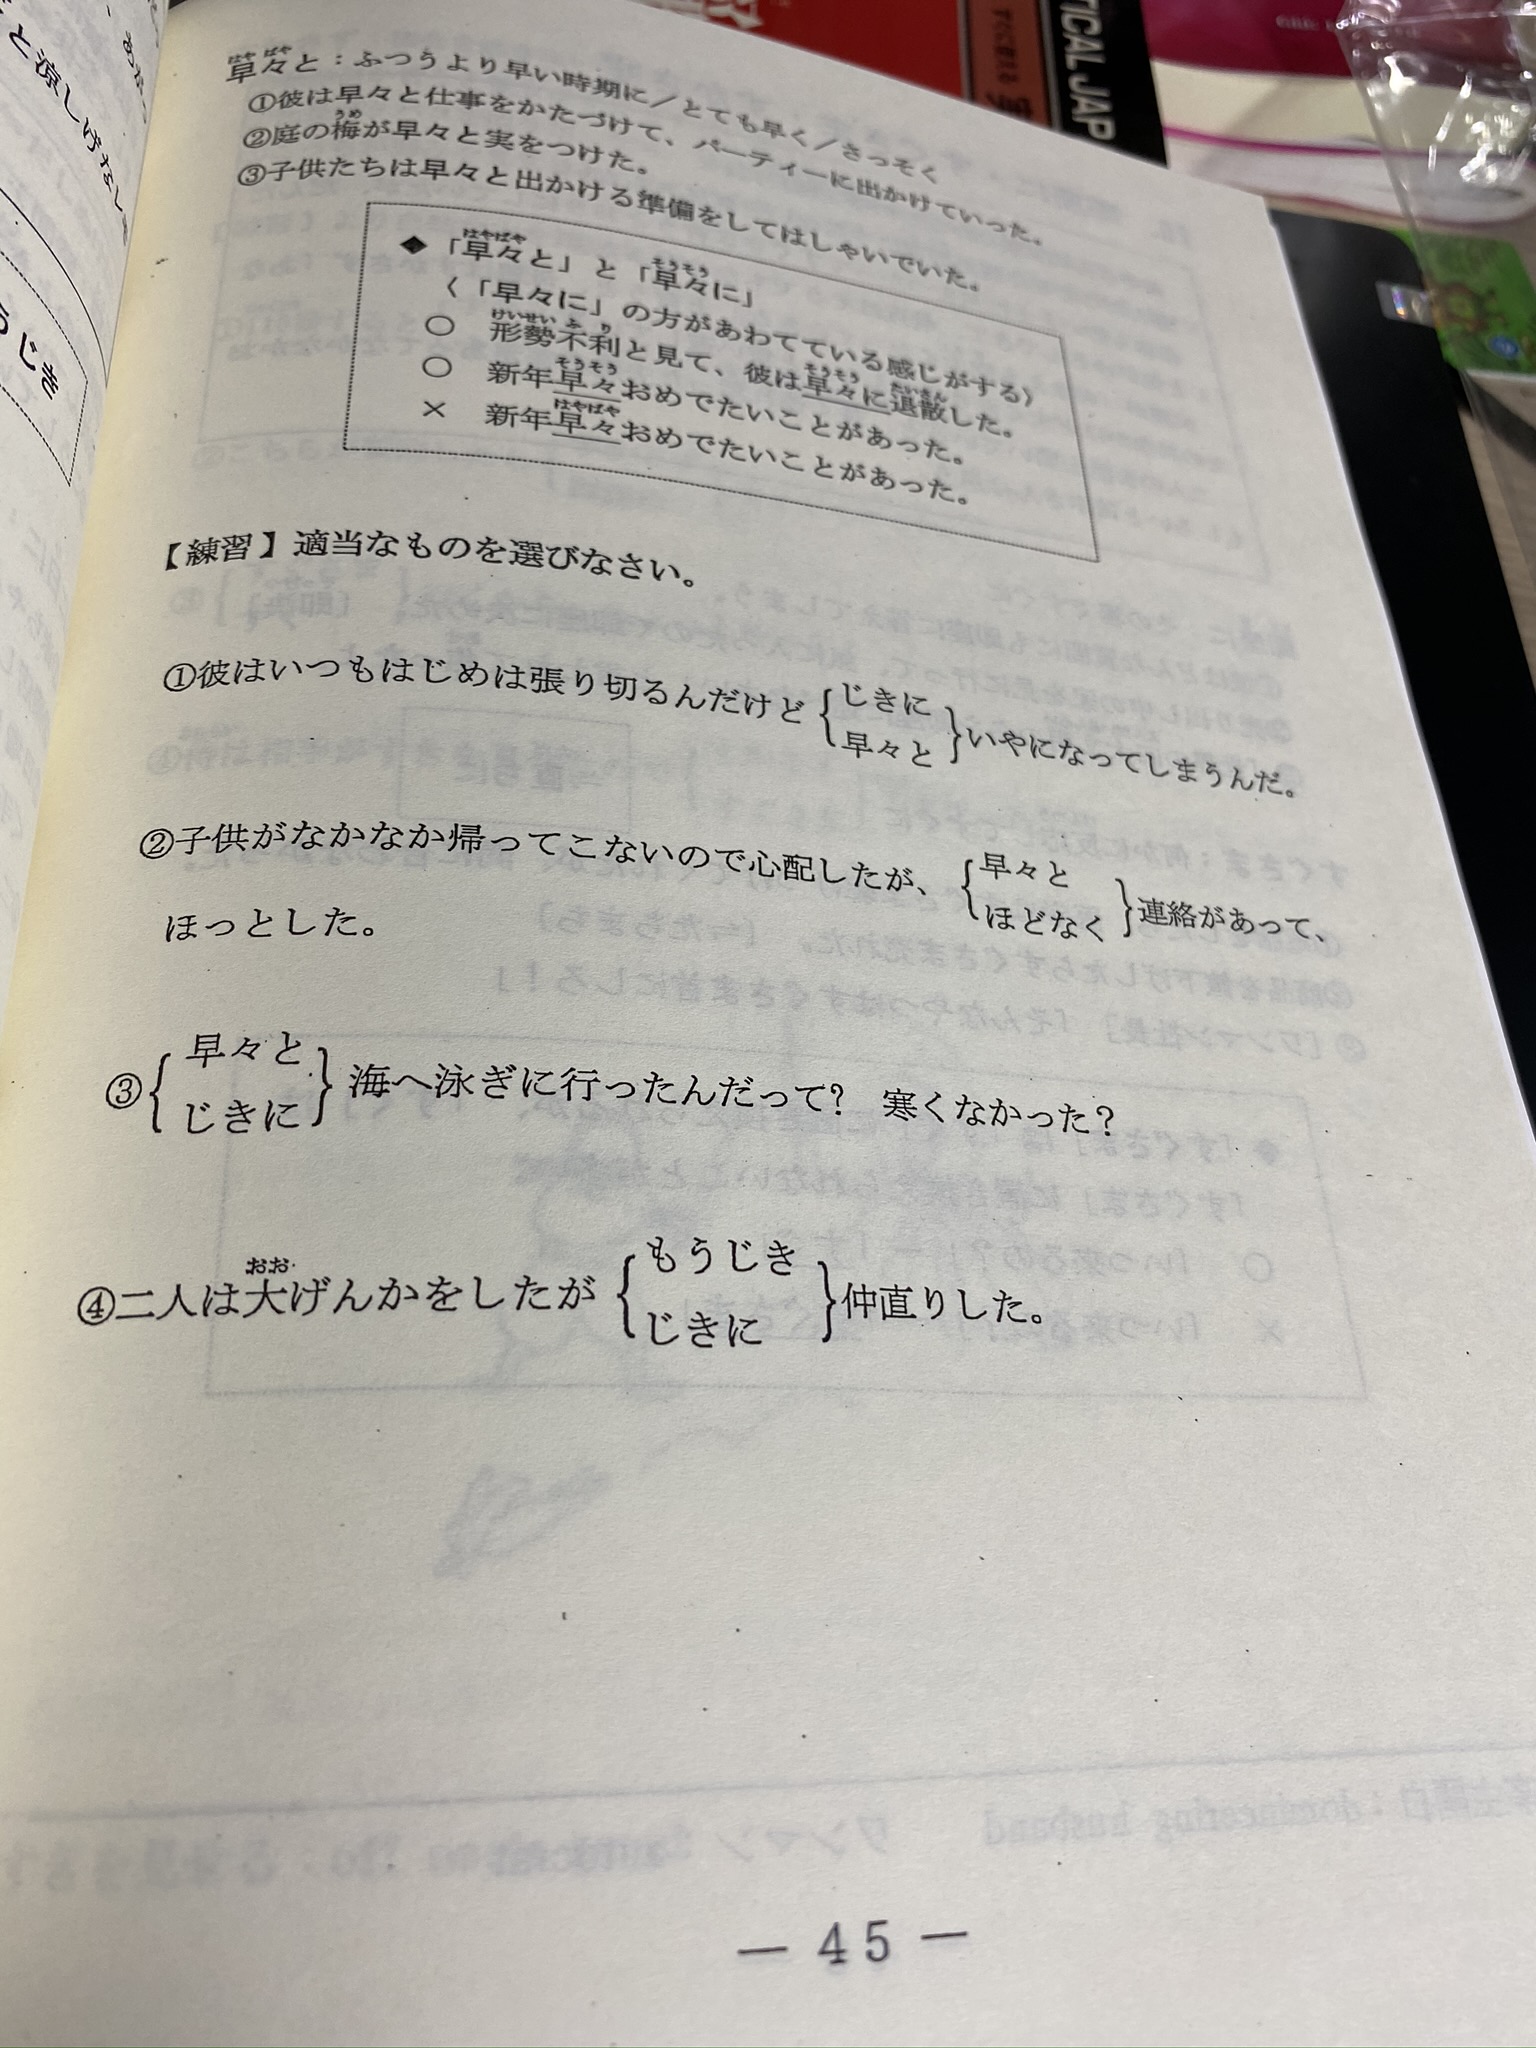 早々と：ふつうより早い時期に／とても早く／さっそく
①彼は早々と仕事をかたづけて、パーティーに出かけていった。
②庭の梅が早々と実をつけた。
③子供たちは早々と出かける準備をしてはしゃいでいた。
◆「早々と」と「早々に」
〈「早々に」の方があわてている感じがする〉
○ 形勢不利と見て、彼は早々に退散した。
○ 新年早々おめでたいことがあった。
× 新年早々おめでたいことがあった。
【練習】適当なものを選びなさい。
①彼はいつもはじめは張り切るんだけど{じきに
早々と}いやになってしまうんだ。
②子供がなかなか帰ってこないので心配したが、{早々と
ほどなく}連絡があって、
ほっとした。
③{早々と
じきに}海へ泳ぎに行ったんだって? 寒くなかった?
④二人は大げんかをしたが{もうじき
じきに}仲直りした。
— 45 —
TICAL JAP